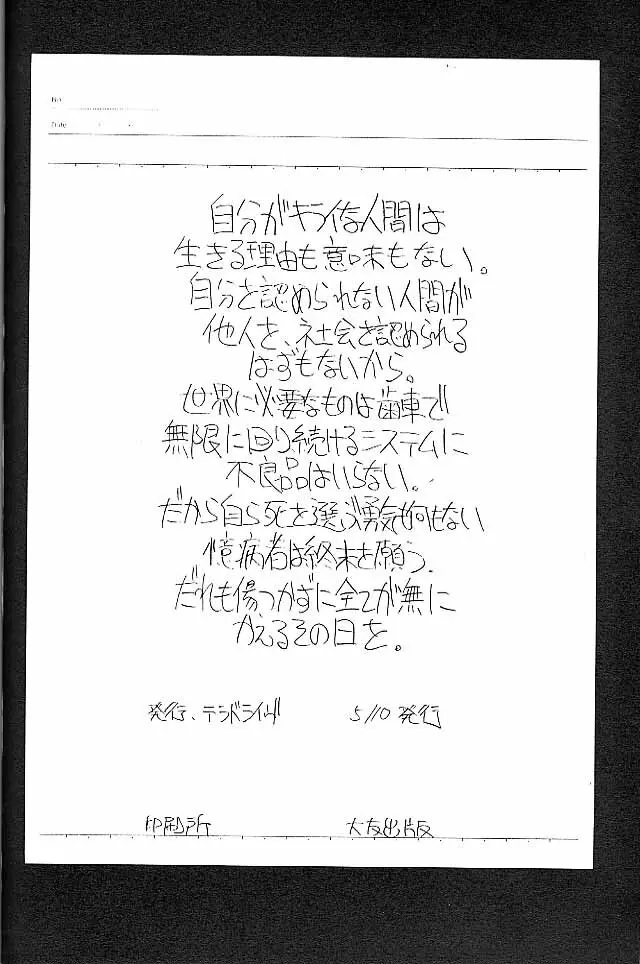 No
Date
自分がキライな人間は
生きる理由も意味もない。
自分を認められない人間が
他人を、社会を認められる
はずもないから。
世界に必要なものは歯車で
無限に回り続けるシステムに
不良品はいらない。
だから自ら死を選ぶ勇気も何もない
憶病者は終末を願う。
だれも傷つかずに全てが無に
かえるその日を。
発行、テラドライヴ 5/10発行
印刷所 大友出版